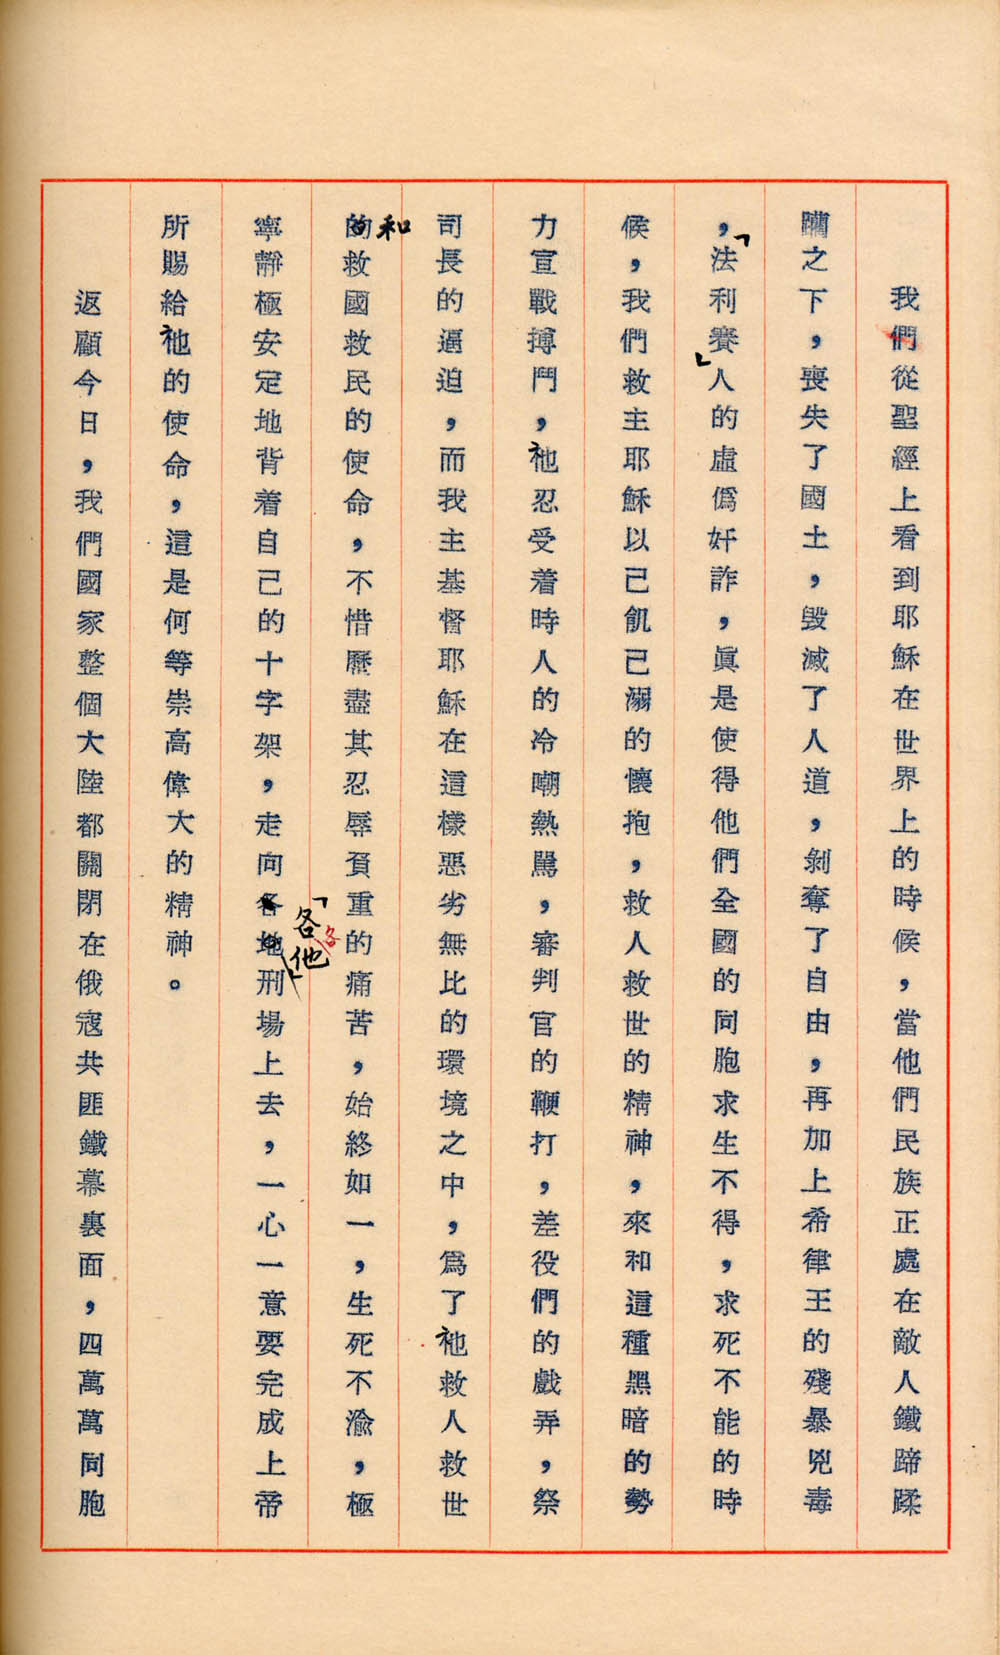 我們從聖經上看到耶穌在世界上的時候，當他們民族正處在敵人鐵蹄蹂
躪之下，喪失了國土，毀滅了人道，剝奪了自由，再加上希律王的殘暴兇毒
，「法利賽」人的虛偽奸詐，眞是使得他們全國的同胞求生不得，求死不能的時
候，我們救主耶穌以己飢己溺的懷抱，救人救世的精神，來和這種黑暗的勢
力宣戰搏鬥，祂忍受着時人的冷嘲熱罵，審判官的鞭打，差役們的戲弄，祭
司長的逼迫，而我主基督耶穌在這樣惡劣無比的環境之中，爲了祂救人救世
和
的救國救民的使命，不惜歷盡其忍辱負重的痛苦，始終如一，生死不渝，極
「各他」
各
寧靜極安定地背着自己的十字架，走向各地刑場上去，一心一意要完成上帝
所賜給祂的使命，這是何等崇高偉大的精神。
返顧今日，我們國家整個大陸都關閉在俄寇共匪鐵幕裏面，四萬萬同胞